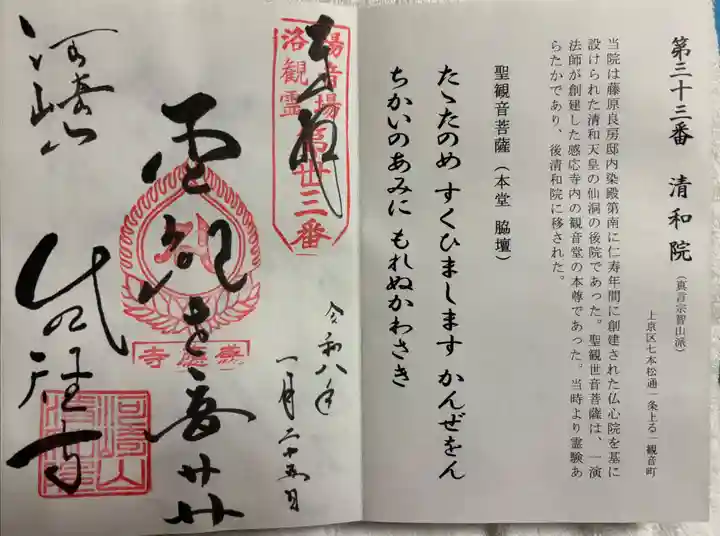 第三十三番 清和院（真言宗智山派）
上京区七本松通一条上る一観音町
当院は藤原良房邸内染殿第南に仁寿年間に創建された仏心院を基に
設けられた清和天皇の仙洞の後院であった。聖観世音菩薩は、一演
法師が創建した感応寺内の観音堂の本尊であった。当時より霊験あ
らたかであり、後清和院に移された。
聖観音菩薩（本堂 脇壇）
たゝたのめ すくひまします かんぜをん
ちかいのあみに もれぬかわさき
奉拝
洛陽
観音
霊場
第卅三番
令和八年
一月二十五日
聖観世音
感應寺
河﨑山
感應寺